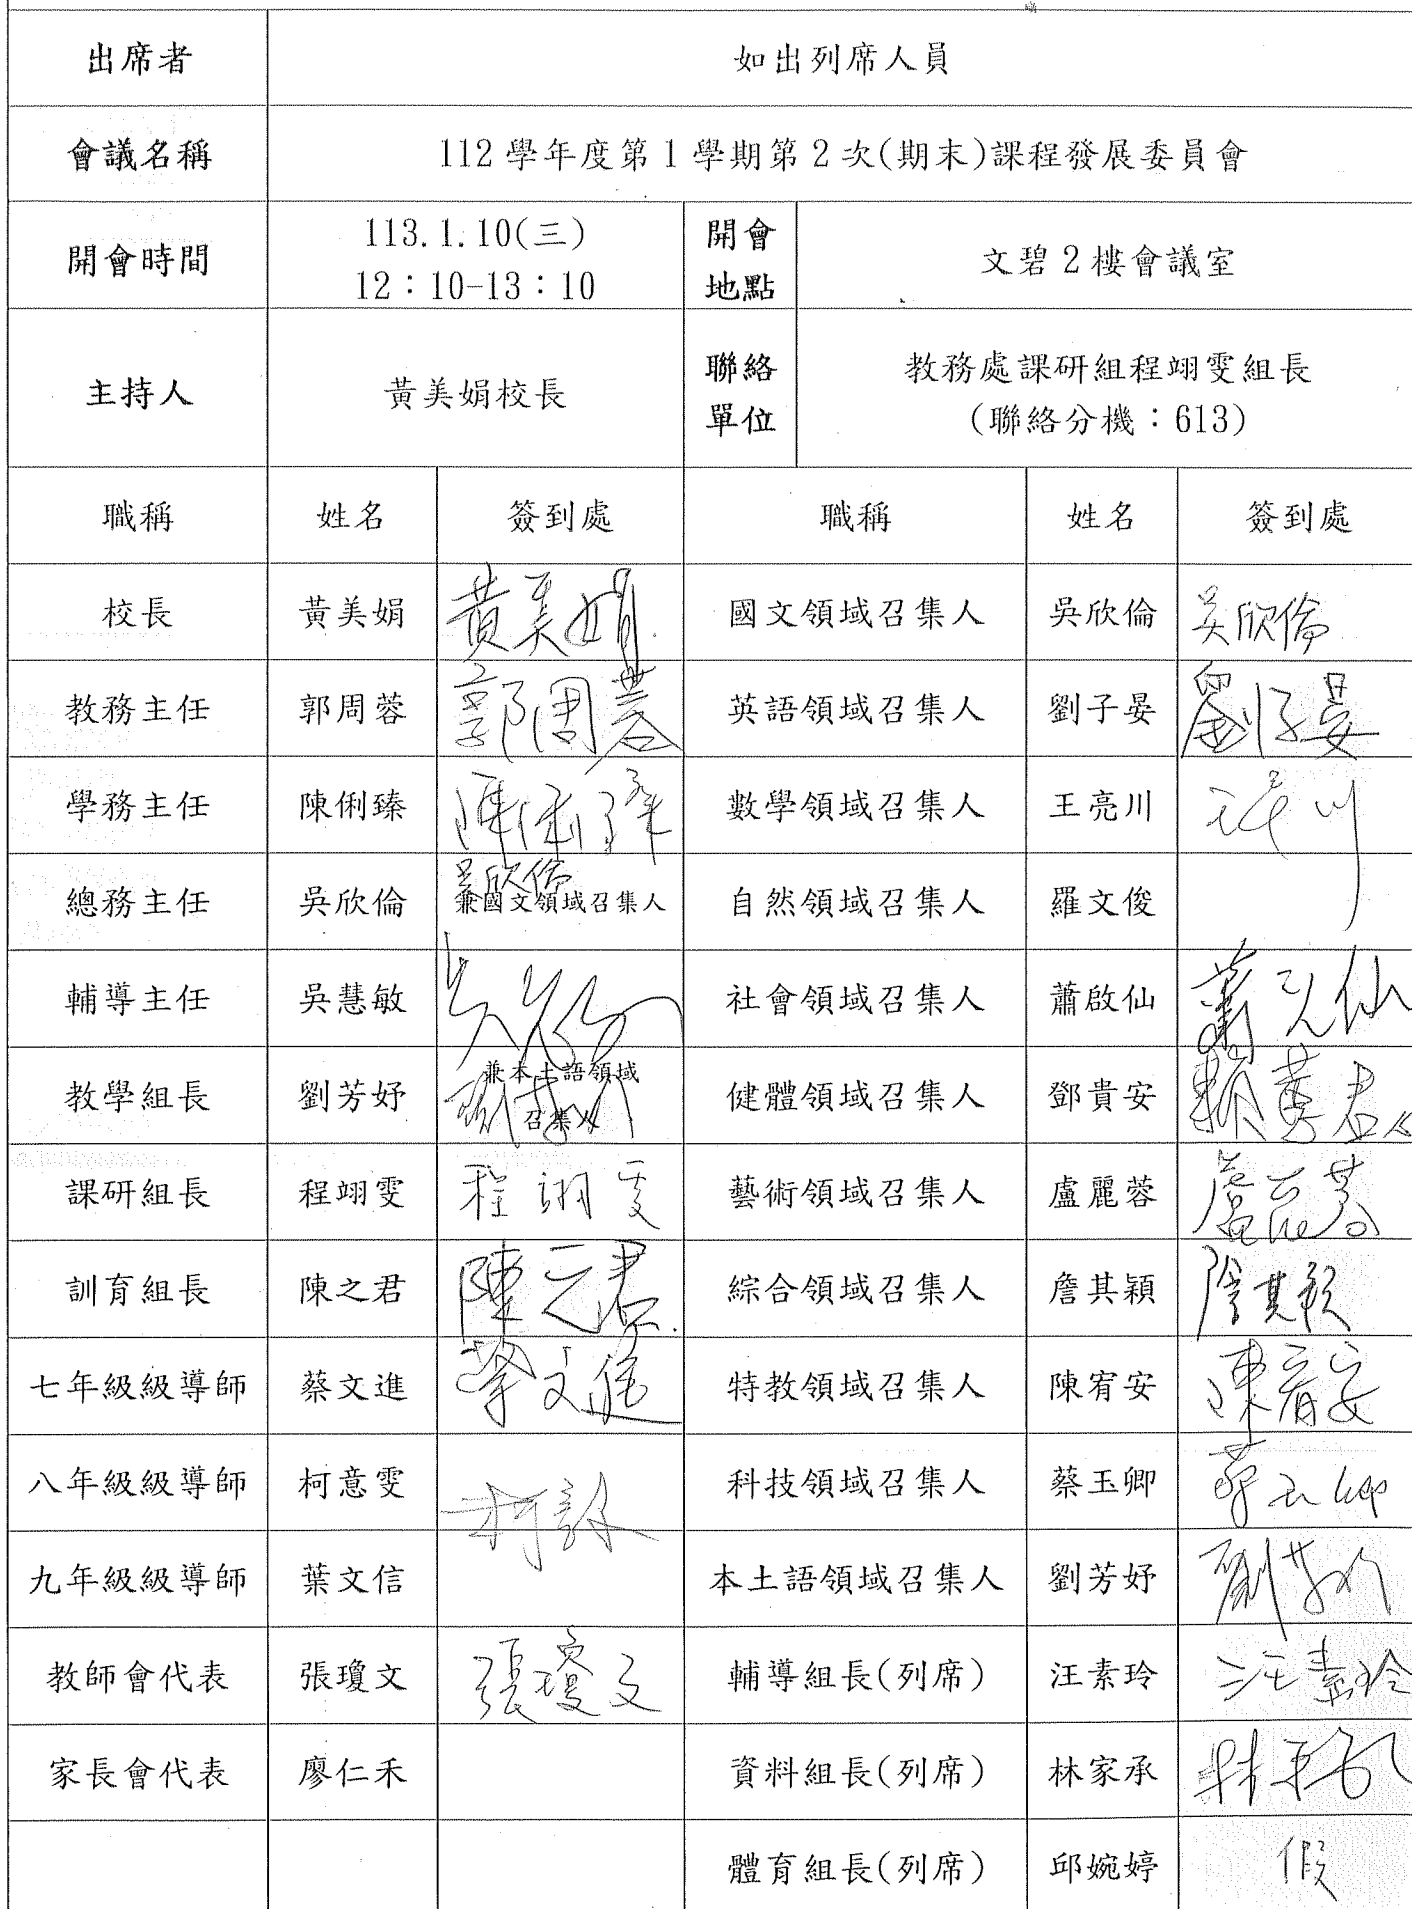 出席者 如出列席人員
會議名稱 112學年度第1學期第2次(期末)課程發展委員會
開會時間 113.1.10(三) 12:10-13:10 開會地點 文碧2樓會議室
主持人 黃美娟校長 聯絡單位 教務處課研組程翊雯組長 (聯絡分機:613)
職稱 姓名 簽到處 職稱 姓名 簽到處
校長 黃美娟 黃美娟 國文領域召集人 吳欣倫 吳欣倫
教務主任 郭周蓉 郭周蓉 英語領域召集人 劉子晏 劉子晏
學務主任 陳俐臻 陳俐臻 數學領域召集人 王亮川 王亮川
總務主任 吳欣倫 吳欣倫 兼國文領域召集人 自然領域召集人 羅文俊
輔導主任 吳慧敏 社會領域召集人 蕭啟仙 蕭啟仙
教學組長 劉芳妤 兼本土語領域召集人 劉芳妤 健體領域召集人 鄧貴安
課研組長 程翊雯 程翊雯 藝術領域召集人 盧麗蓉 盧麗蓉
訓育組長 陳之君 陳之君 綜合領域召集人 詹其穎 詹其穎
七年級級導師 蔡文進 蔡文進 特教領域召集人 陳宥安 陳宥安
八年級級導師 柯意雯 科技領域召集人 蔡玉卿 蔡玉卿
九年級級導師 葉文信 本土語領域召集人 劉芳妤 劉芳妤
教師會代表 張瓊文 張瓊文 輔導組長(列席) 汪素玲 汪素玲
家長會代表 廖仁禾 資料組長(列席) 林家承 林家承
體育組長(列席) 邱婉婷 假